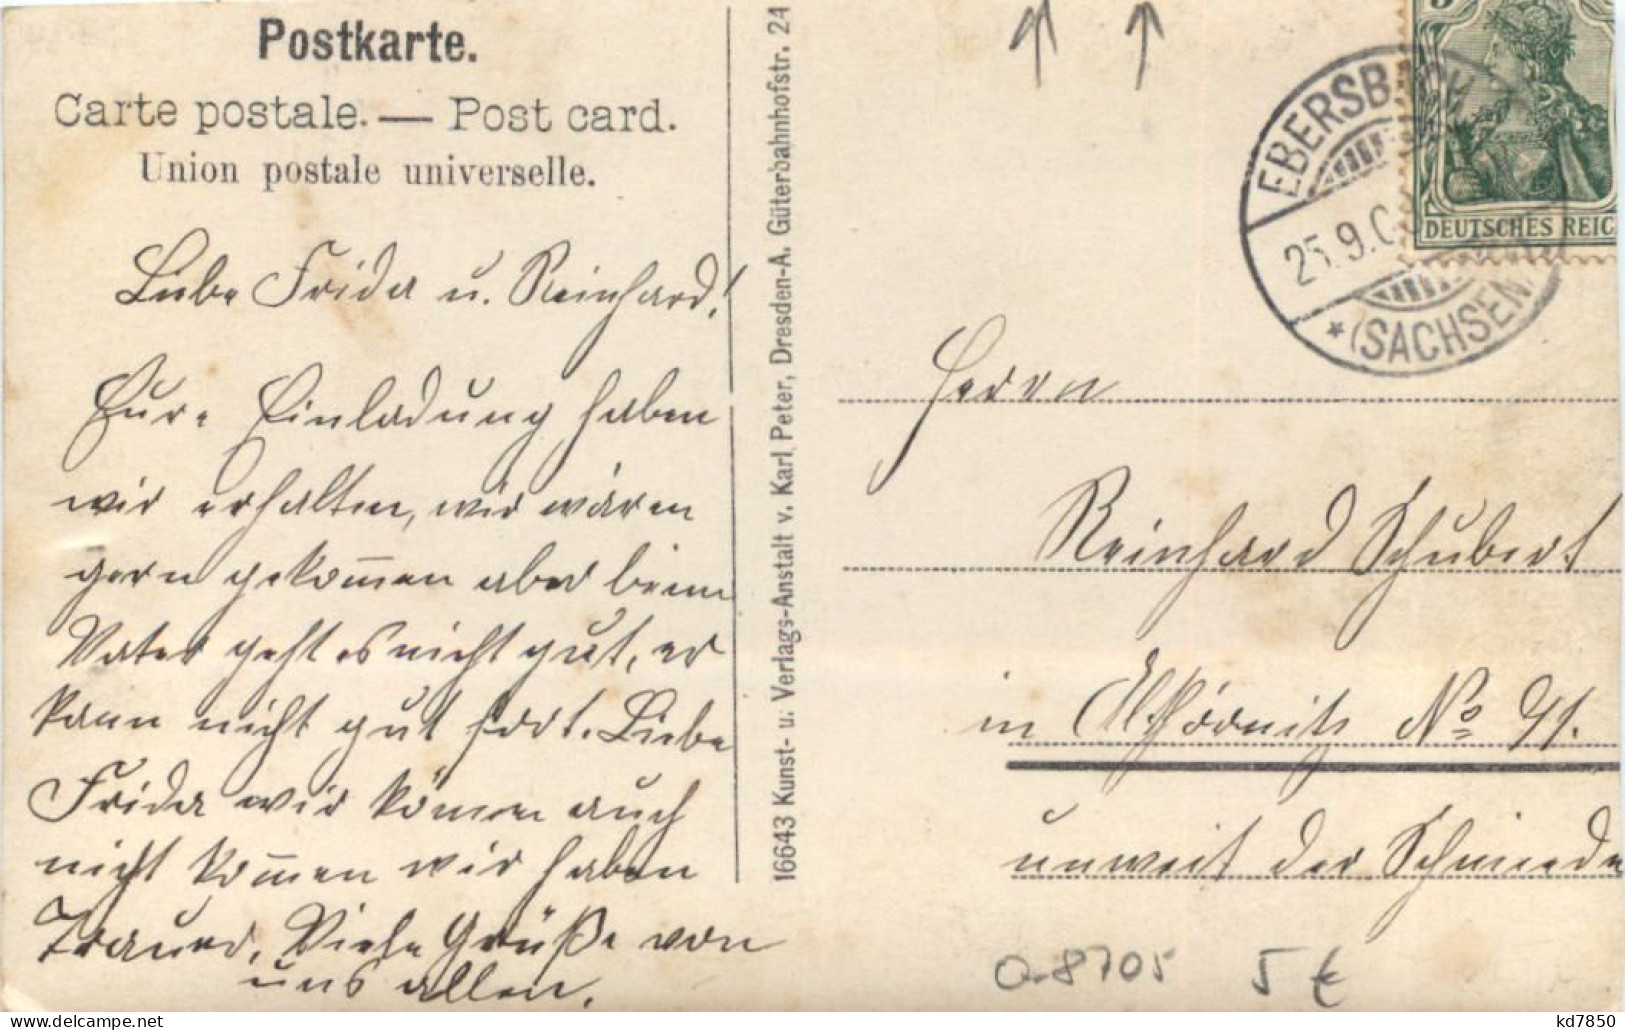 Postkarte.
Carte postale. — Post card.
Union postale universelle.
Liebe Frida u. Reinhard!
Eure Einladung haben
wir erhalten, wir wären
gern gekommen aber beim
Vater geht es nicht gut, er
kann nicht gut fort. Liebe
Frida wir können auch
nicht kommen wir haben
Trauer. Viele Grüße von
uns allen.
16643 Kunst- u. Verlags-Anstalt v. Karl Peter, Dresden-A. Güterbahnhofstr. 24
EBERSBACH
25.9.0
*(SACHSEN)
DEUTSCHES REIC
Herrn
Reinhard Schubert
in No 41.
unweit der Schmiede
a-8705 5 €
kd7850